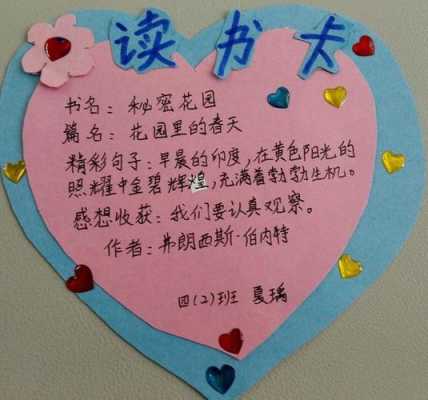 读书卡
书名：秘密花园
篇名：花园里的春天
精彩句子：早晨的印度，在黄色阳光的
照耀中金碧辉煌，充满着勃勃生机。
感想收获：我们要认真观察。
作者：弗朗西斯·伯内特
四（2）班 夏瑀